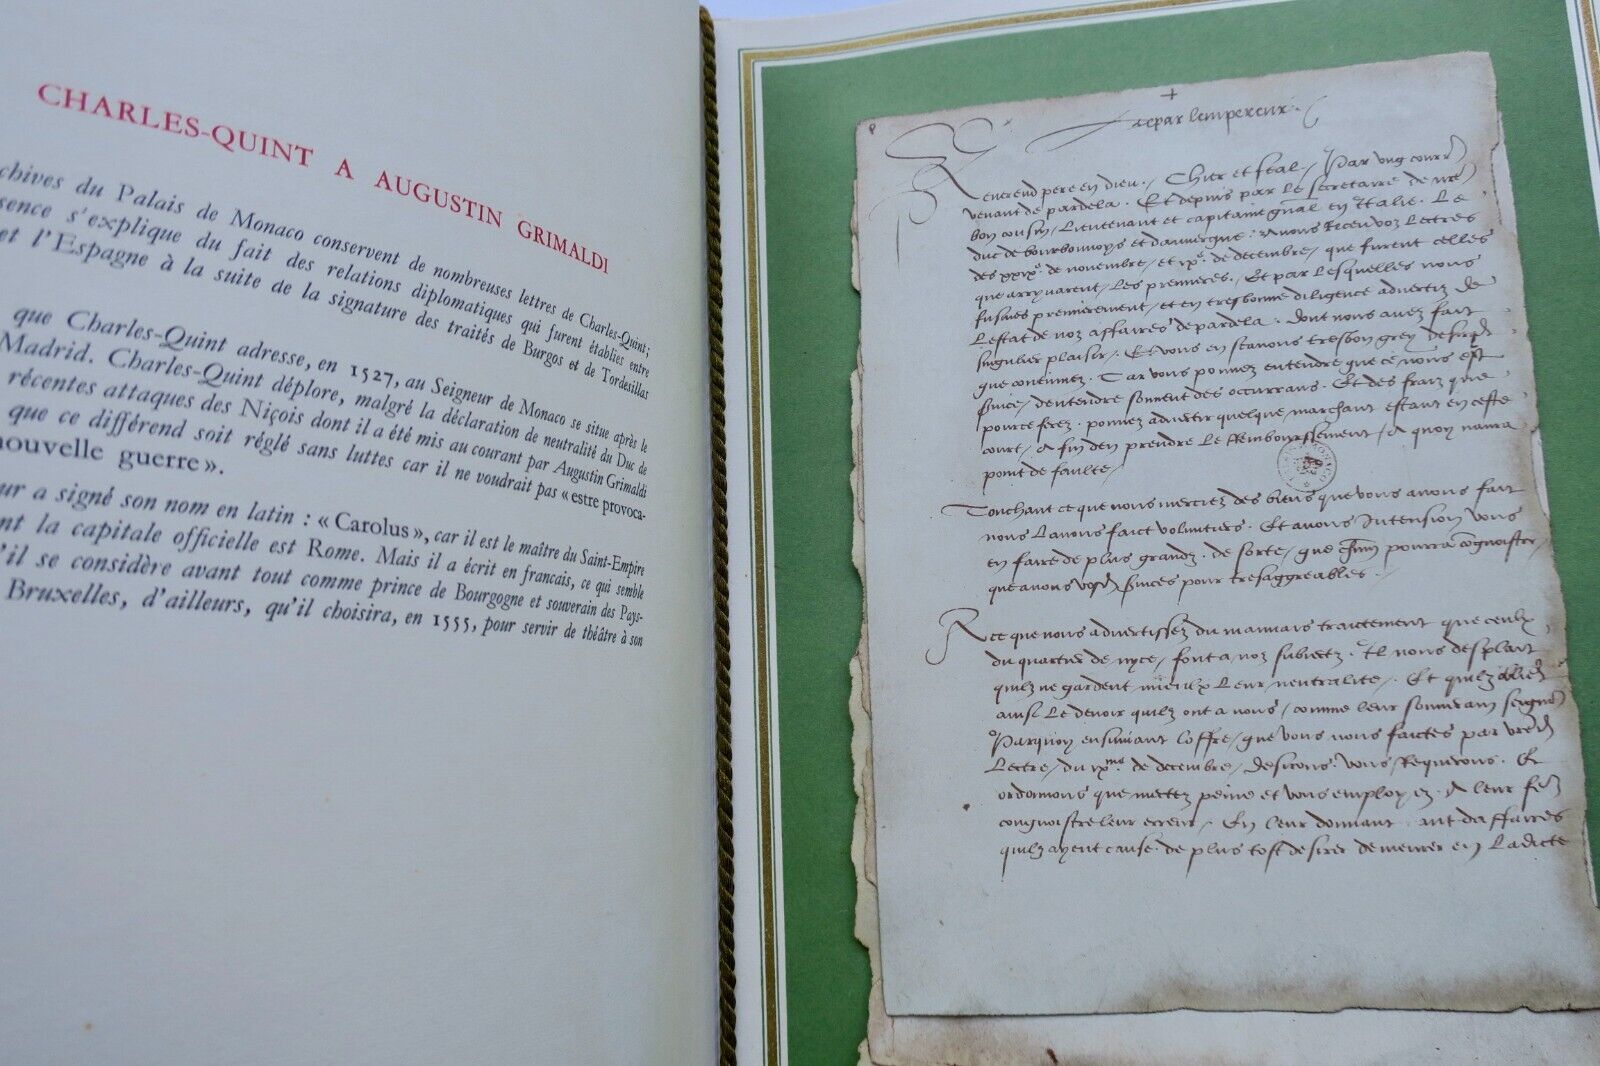 CHARLES-QUINT A AUGUSTIN GRIMALDI
chives du Palais de Monaco conservent de nombreuses lettres de Charles-Quint;
sence s'explique du fait des relations diplomatiques qui furent établies entre
et l'Espagne à la suite de la signature des traités de Burgos et de Tordesillas
que Charles-Quint adresse, en 1527, au Seigneur de Monaco se situe après le
Madrid. Charles-Quint déplore, malgré la déclaration de neutralité du Duc de
récentes attaques des Niçois dont il a été mis au courant par Augustin Grimaldi
que ce différend soit réglé sans luttes car il ne voudrait pas « estre provoca-
nouvelle guerre ».
ur a signé son nom en latin : « Carolus », car il est le maître du Saint-Empire
nt la capitale officielle est Rome. Mais il a écrit en francais, ce qui semble
'il se considère avant tout comme prince de Bourgogne et souverain des Pays-
Bruxelles, d'ailleurs, qu'il choisira, en 1555, pour servir de théâtre à son
+
par lempereur
Reverend pere en dieu. Chier et feal, Par ung courr
venant de pardela. Et depuis par le secretaire de nre
bon cousin, Lieutenant et capitaine gnal en Italie. Le
duc de bourbonnoys et dauvergne. avons Receu voz Lectres
des XXIXe de novembre, et IXe de decembre, que furent celles
que arryvarent, Les premieres. Et par Lesquelles nous
fusmes premierement, et en tresbonne diligence advertiz de
Lestat de noz affaires de pardela. dont nous avez fait
singulier plaisir. Et vous en scavons tresbon grey
que continuez. Car vous pouvez entendre que ce nous est
dentendre souvent des occurrans. Et des fraiz que
pource ferez. pouvez advertir quelque marchant estant en ceste
court, A fin den prendre Le Remboursement, A quoy naura
point de faulte,
Touchant ce que nous merciez des biens que vous avons fait
nous Lavons faict voluntiers. Et avons Intension vous
en faire de plus grandz. de sorte, que pourra cognoistre
que avons pour tresaggreables.
A ce que nous advertissez du mauvais traictement que ceulx
du quartier de nyce, font a noz subiectz. Il nous desplait
quilz ne gardent mieulx Leur neutralite. Et quilz
ainsi Le devoir quilz ont a nous, comme leur souverain seigneur
Parquoy ensuivant Loffre, que vous nous faictes par
Lectre, du IXme de decembre, desirons. vous Requerons. Et
ordonnons que mectez peine et vous employez. A leur
congnoistre leur erreur, En leur donnant. ant daffaires
quilz ayent cause. de plus tost desirer demeurer en Ladicte